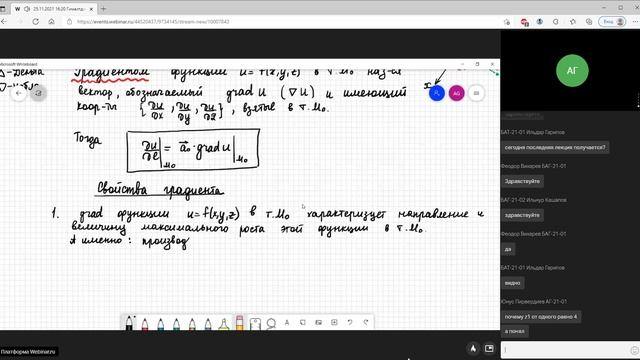 25.11.2021 16:20
https://events.webinar.ru/44520437/9734145/stream-new/10007843
Войти
Microsoft Whiteboard
Δ-дельта
Градиентом функции u=f(x,y,z) в т.M₀ наз-ся
вектор, обозначаемый grad u (∇u) и имеющий
коор-ты {∂u/∂x, ∂u/∂y, ∂u/∂z}, взятые в т.M₀.
Тогда
∂u/∂l|M₀ = a̅₀·grad u|M₀
Свойства градиента
1. grad функции u=f(x,y,z) в т.M₀ характеризует направление и
величину максимального роста этой функции в т.M₀.
А именно: производ
Платформа Webinar.ru
AG
АГ
БАТ-21-01 Ильдар Гарипов
сегодня последняя лекция получается?
Феодор Вихарев БАГ-21-01
Здравствуйте
БАГ-21-02 Ильнур Кашапов
здравствуйте
Феодор Вихарев БАГ-21-01
да
БАТ-21-01 Ильдар Гарипов
видно
Юнус Пирвердиев АГ-21-01
почему z1 от одного равно 4
а понял